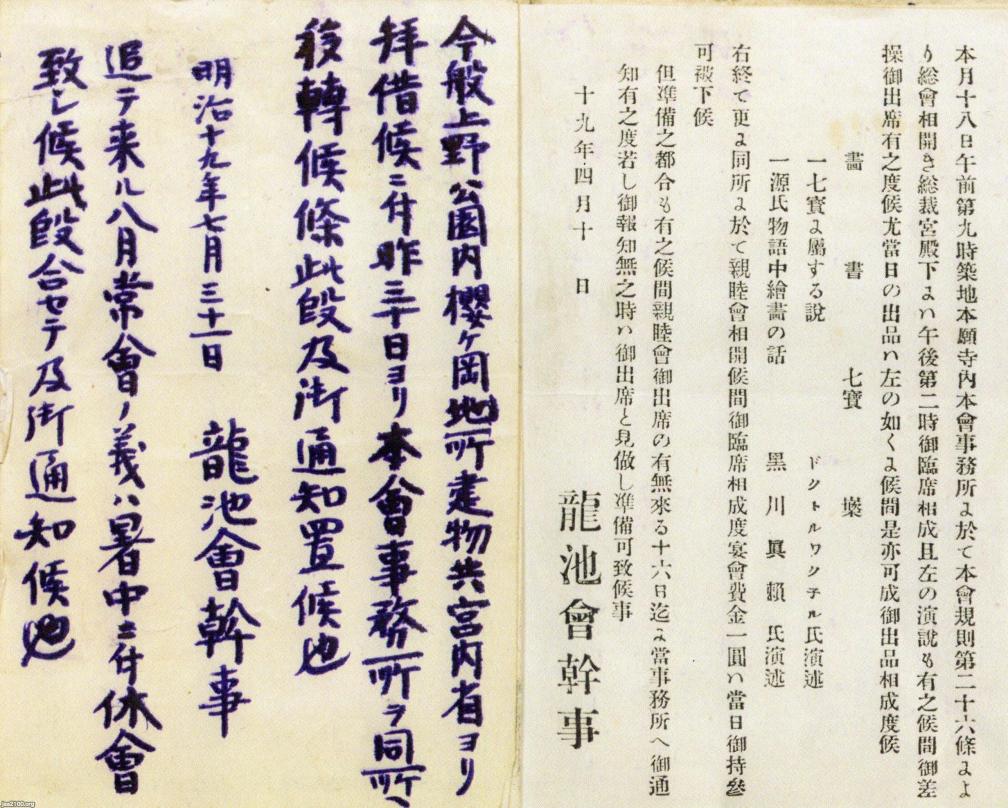 本月十八日午前第九時築地本願寺內本會事務所よ於て本會規則第二十六條よよ
り総會相開き総裁宮殿下よハ午後第二時御臨席相成且左の演説も有之候間御差
操御出席有之度候尤當日の出品ハ左の如くよ候間是亦可成御出品相成度候
畵 書 七寶
一七寶よ屬する說 ドクトルワクチル氏演述
一源氏物語中繪畵の話 黑川眞賴氏演述
右終て更よ同所よ於て親睦會相開候間御臨席相成度宴會費金一圓ハ當日御持參
可被下候
但準備之都合も有之候間親睦會御出席の有無來る十六日迄よ當事務所へ御通
知有之度若し御報知無之時ハ御出席と見做し準備可致候事
十九年四月十日
龍池會幹事
今般上野公園内櫻ヶ岡地所建物共宮内省ヨリ
拜借候ニ付昨三十日ヨリ本會事務所ヲ同所へ
移轉候條此段及御通知置候也
明治十九年七月三十一日 龍池會幹事
追テ来ル八月常會ノ義ハ暑中ニ付休會
致シ候此段合セテ及御通知候也
jaa2100.org